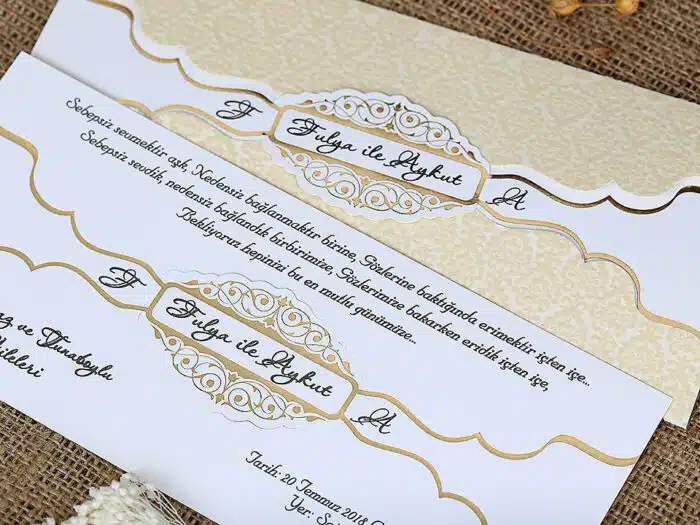 F
Fulya ile Aykut
A
Sebepsiz sevmektir aşk, Nedensiz bağlanmaktır birine, Sözlerine baktığında erimektir içten içe...
Sebepsiz sevdik, nedensiz bağlandık birbirimize, Gözlerimize bakarken eridik içten içe,
Bekliyoruz hepinizi bu en mutlu günümüze...
F
Fulya ile Aykut
A
ve Tunasoylu
Aileleri
Tarih: 20 Temmuz 2018
Yer: